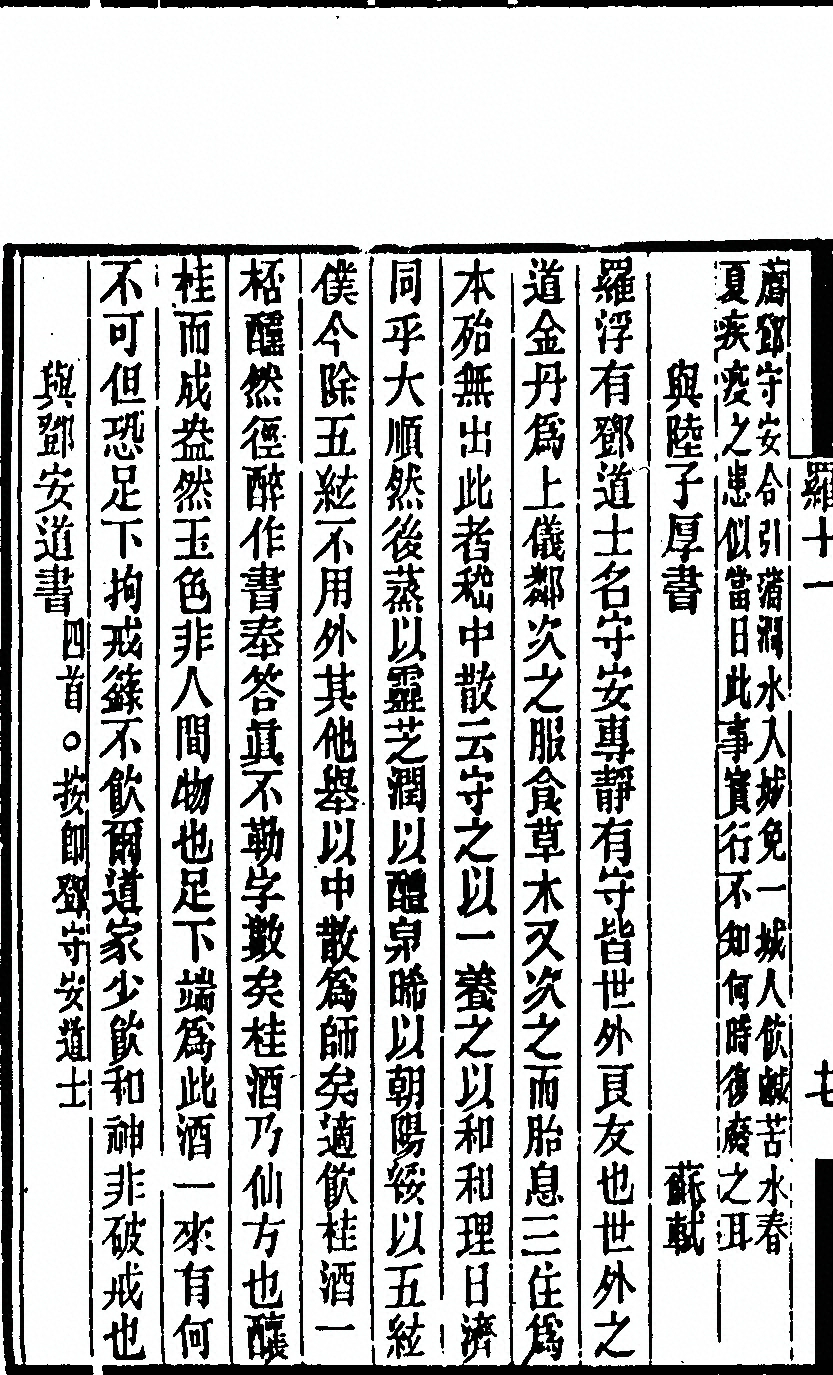 羅十一
七
薦鄧守安合引蒲澗水入城免一城人飲鹹苦水春
夏疾疫之患似當日此事實行不知何時復廢之耳
與陸子厚書 蘇軾
羅浮有鄧道士名守安專靜有守皆世外良友也世外之
道金丹爲上儀鄰次之服食草木又次之而胎息三住爲
本殆無出此者嵇中散云守之以一養之以和和理日濟
同乎大順然後蒸以靈芝潤以醴泉晞以朝陽綏以五絃
僕今除五絃不用外其他舉以中散爲師矣適飲桂酒一
桮醺然徑醉作書奉答眞不勒字數矣桂酒乃仙方也釀
桂而成盎然玉色非人間物也足下端爲此酒一來有何
不可但恐足下拘戒籙不飲爾道家少飲和神非破戒也
與鄧安道書 四首○按卽鄧守安道士